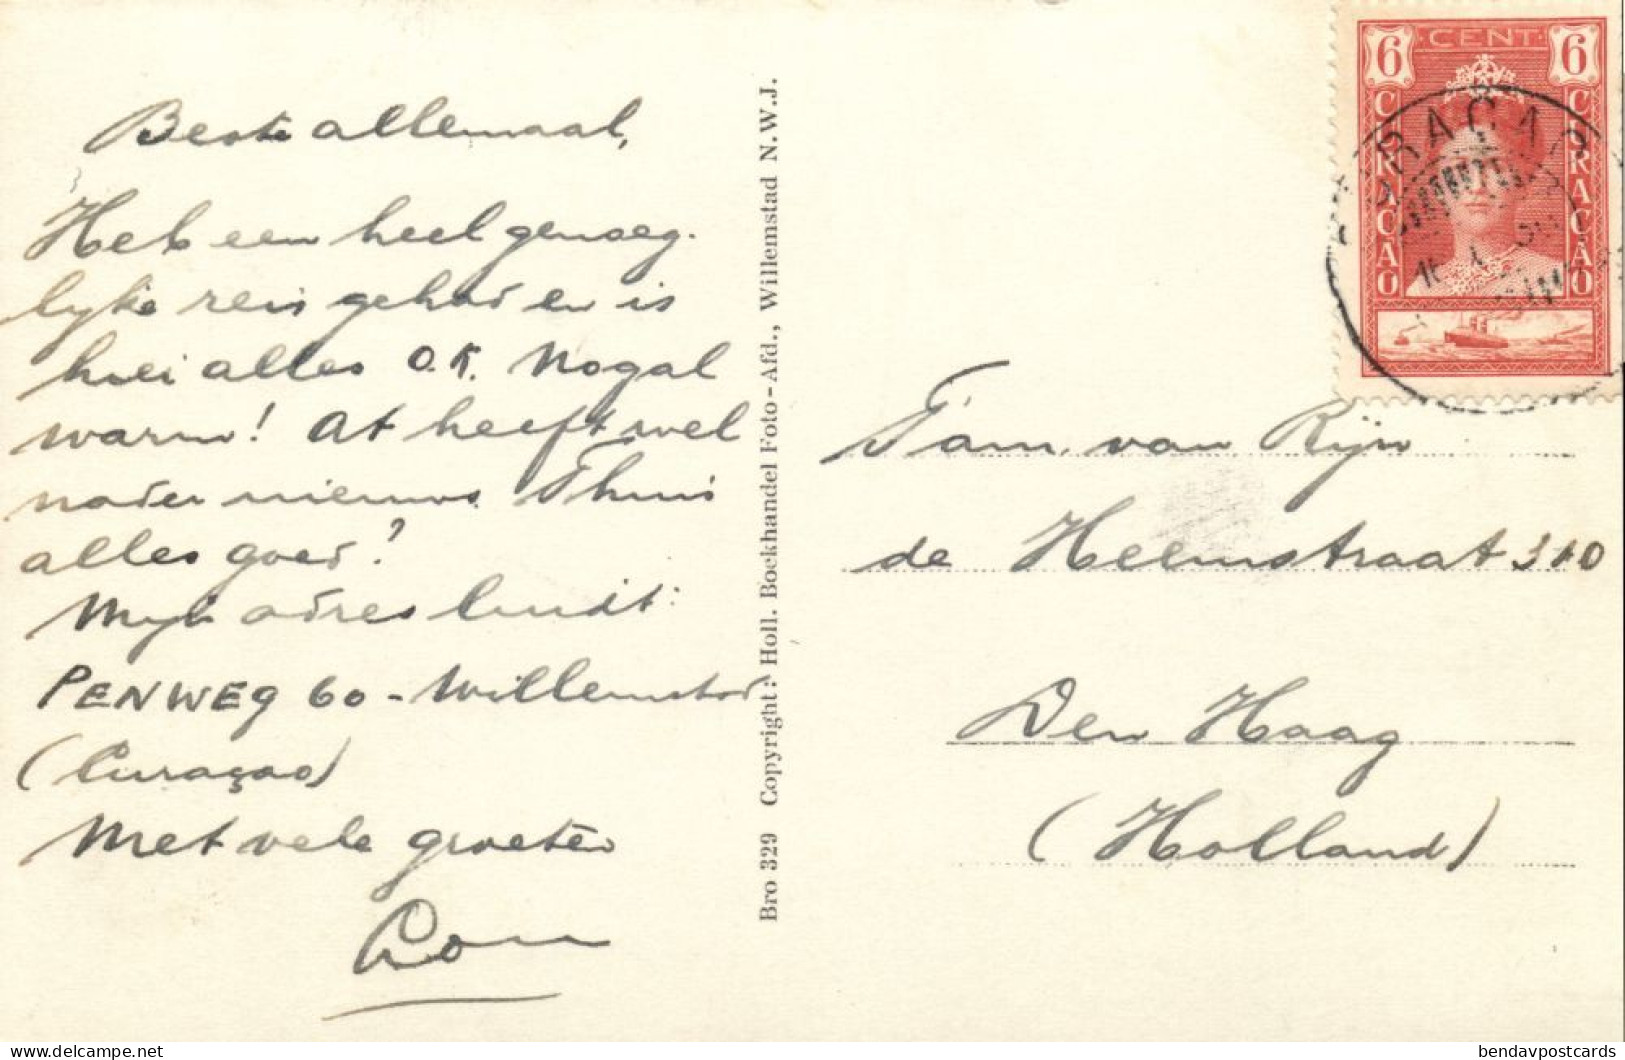 Beste allemaal,
Heb een heel genoeg-
lyke reis gehad en is
hier alles O.K. Nogal
warm! At heeft wel
nader nieuws. Thuis
alles goed?
Myn adres luidt:
PENWEG 60 - Willemstad
(Curaçao)
Met vele groeten
Bro 329 Copyright: Holl. Boekhandel Foto-Afd., Willemstad N.W.J.
6 CENT 6
CURAÇAO CURAÇAO
CURAÇAO
Fam. van Rijn
de Heemstraat 310
Den Haag
(Holland)
bendavpostcards